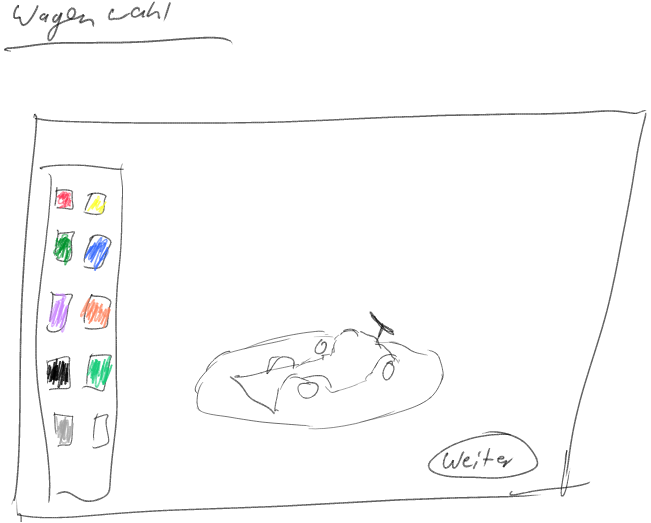 Wagenwahl
Weiter